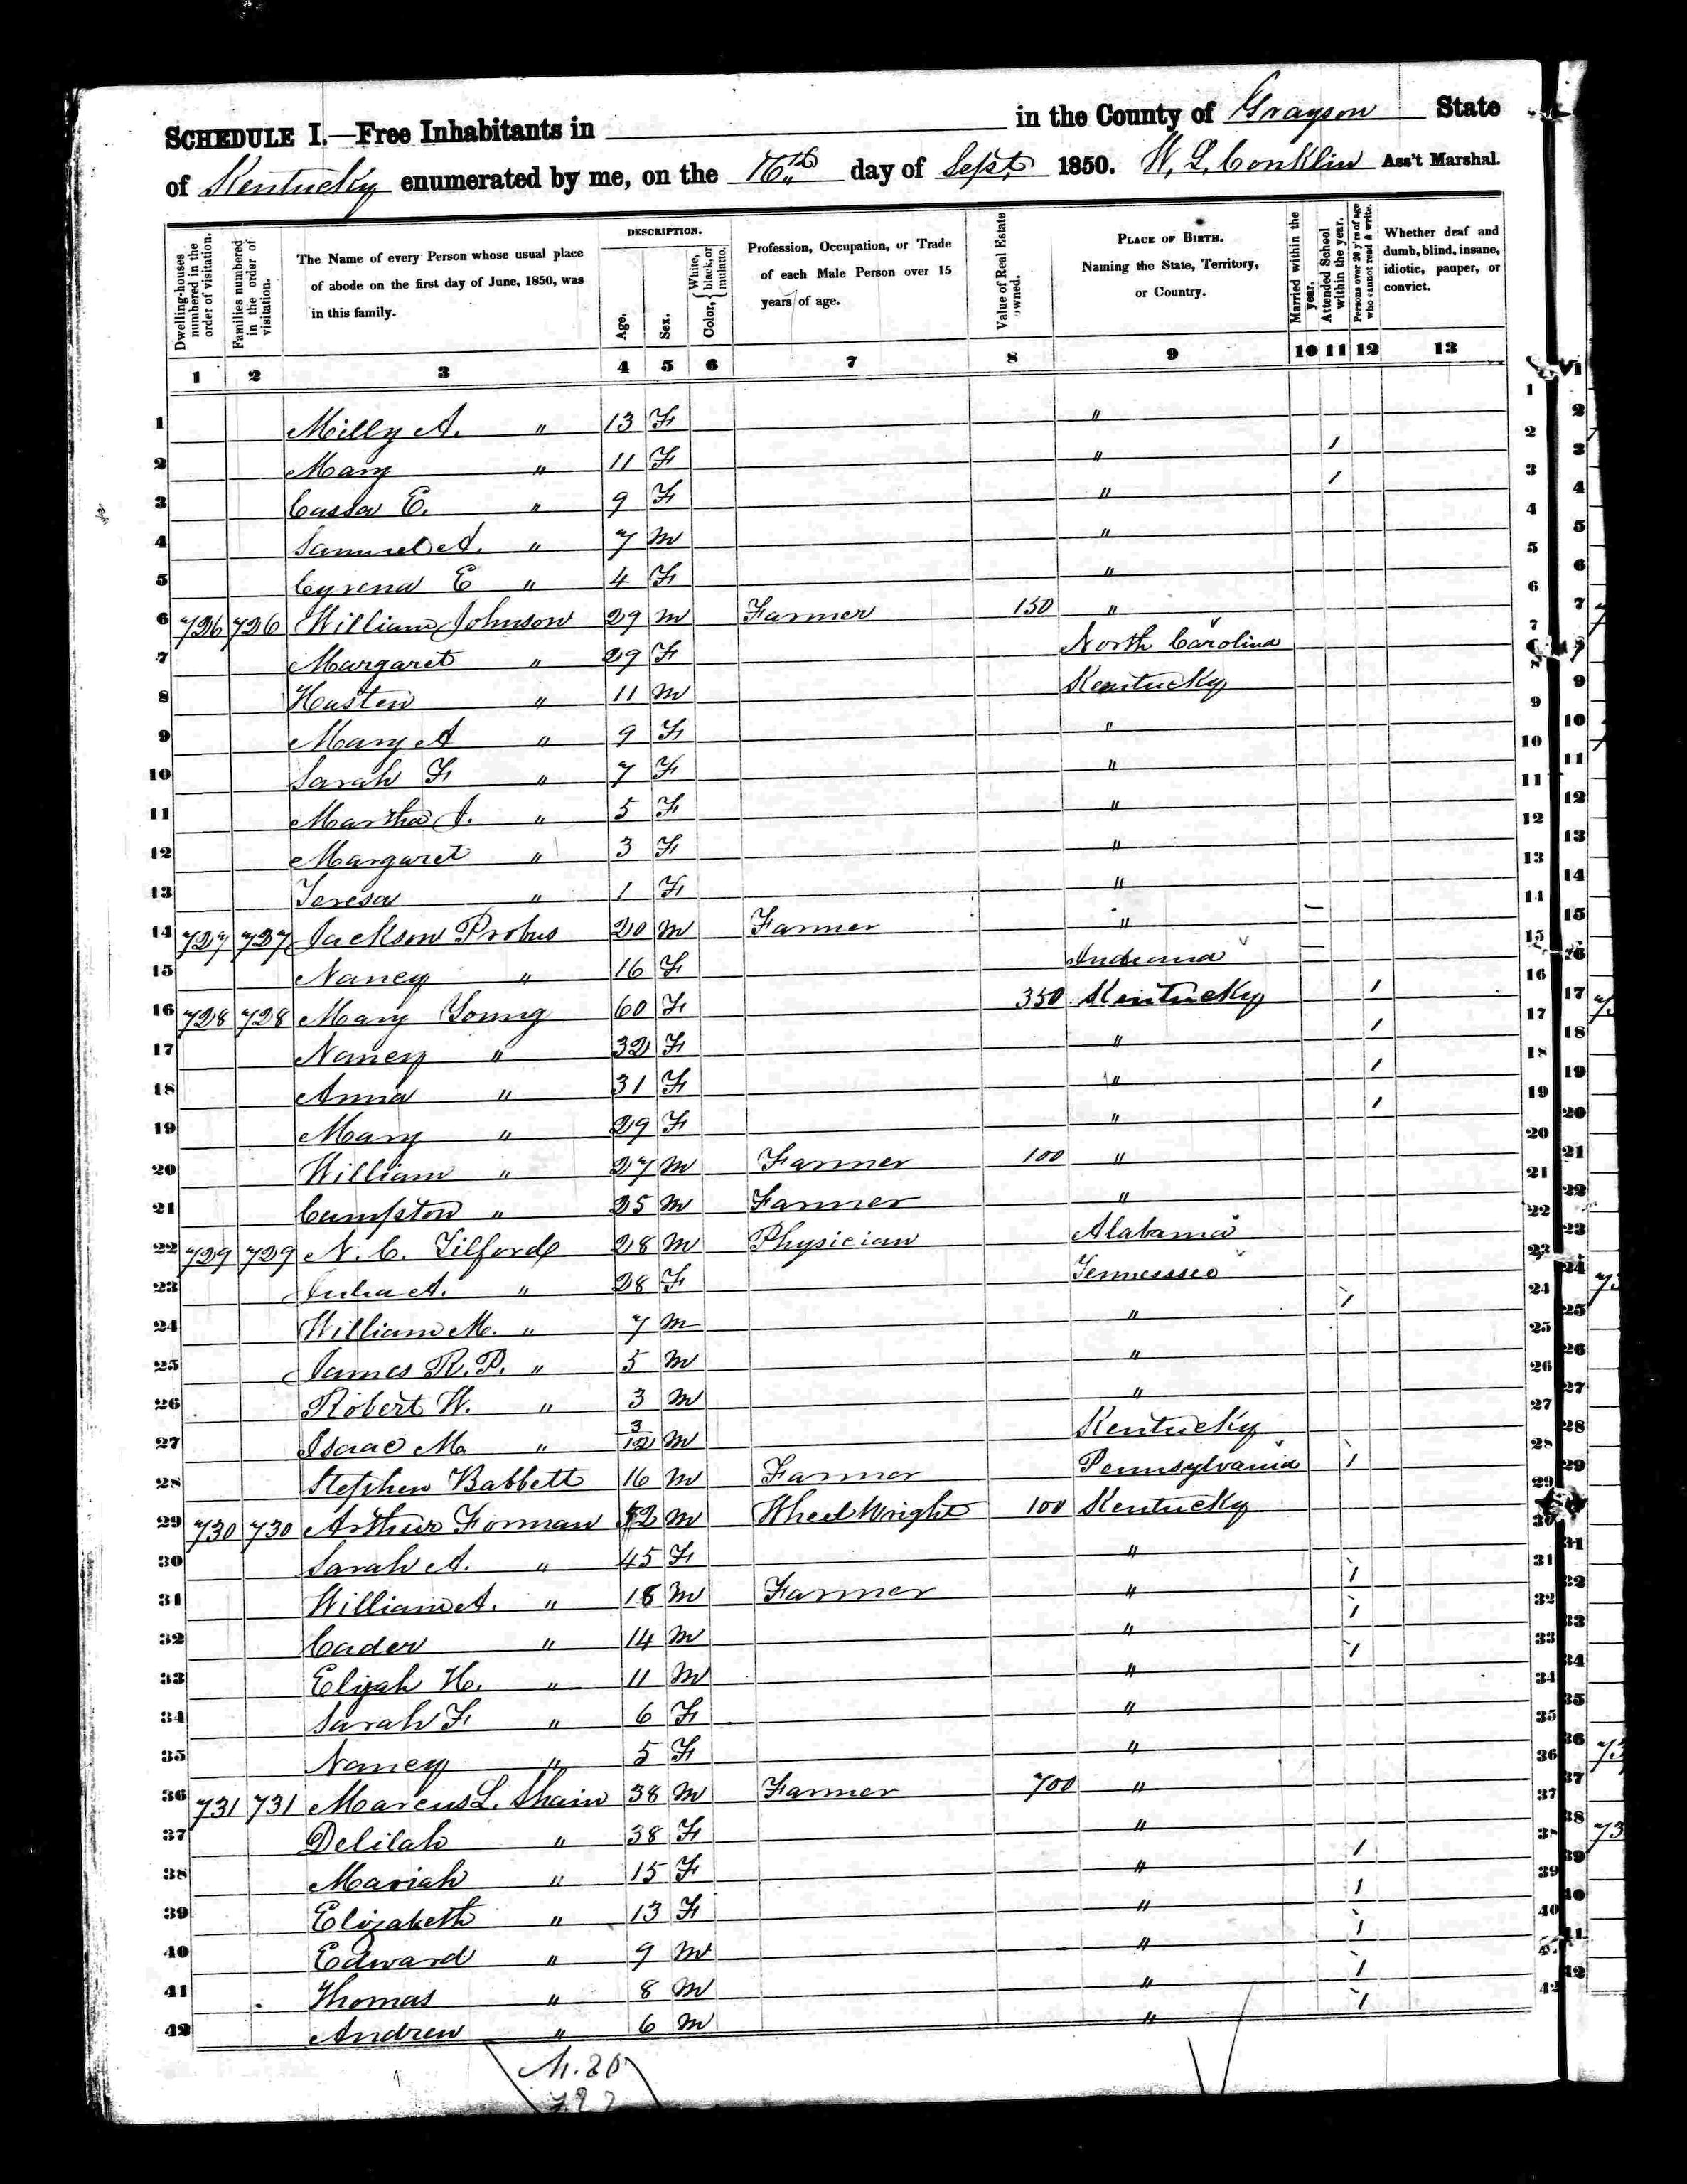 SCHEDULE I.—Free Inhabitants in in the County of Grayson State
of Kentucky enumerated by me, on the 16th day of Sept. 1850. W. L. Conklin Ass't Marshal.
Dwelling-houses numbered in the order of visitation.
Families numbered in the order of visitation.
The Name of every Person whose usual place of abode on the first day of June, 1850, was in this family.
DESCRIPTION.
Age.
Sex.
Color, { White, black, or mulatto.
Profession, Occupation, or Trade of each Male Person over 15 years of age.
Value of Real Estate owned.
PLACE OF BIRTH. Naming the State, Territory, or Country.
Married within the year.
Attended School within the year.
Persons over 20 y'rs of age who cannot read & write.
Whether deaf and dumb, blind, insane, idiotic, pauper, or convict.
1 2 3 4 5 6 7 8 9 10 11 12 13
1 Milly A. " 13 F " 1
2 Mary " 11 F " 1 2
3 Cassa E. " 9 F " 1 3
4 Samuel A. " 7 M " 4
5 Cyrena E " 4 F " 5
6 726 726 William Johnson 29 M Farmer 150 " 6
7 Margaret " 29 F North Carolina 7
8 Hasten " 11 M Kentucky
9 Mary A " 9 F " 9
10 Sarah F " 7 F " 10
11 Martha J. " 5 F " 11
12 Margaret " 3 F " 12
13 Teresa " 1 F " 13
14 727 727 Jackson Probus 20 M Farmer " 14
15 Nancy " 16 F Indiana 15
16 728 728 Mary Young 60 F 350 Kentucky 1 16
17 Nancy " 32 F " 1 17
18 Anna " 31 F " 1 18
19 Mary " 29 F " 1 19
20 William " 27 M Farmer 100 " 20
21 Cumpston " 25 M Farmer " 21
22 729 729 N. C. Tilford 28 M Physician Alabama 22
23 Julia A. " 28 F Tennessee 23
24 William M. " 7 M " 1 24
25 James R. P. " 5 M " 25
26 Robert W. " 3 M " 26
27 Isaac M. " 3/12 M Kentucky 27
28 Stephen Babbett 16 M Farmer Pennsylvania 1 28
29 730 730 Arthur Forman 52 M Wheel Wright 100 Kentucky 29
30 Sarah A. " 45 F " 30
31 William A. " 18 M Farmer " 1 31
32 Cader " 14 M " 1 32
33 Elijah H. " 11 M " 1 33
34 Sarah F " 6 F " 34
35 Nancy " 5 F " 35
36 731 731 Marcus L. Shain 38 M Farmer 700 " 36
37 Delilah " 38 F " 37
38 Mariah " 15 F " 1 38
39 Elizabeth " 13 F " 1 39
40 Edward " 9 M " 1 40
41 Thomas " 8 M " 1
42 Andrew " 6 M " 1 42
M. 20